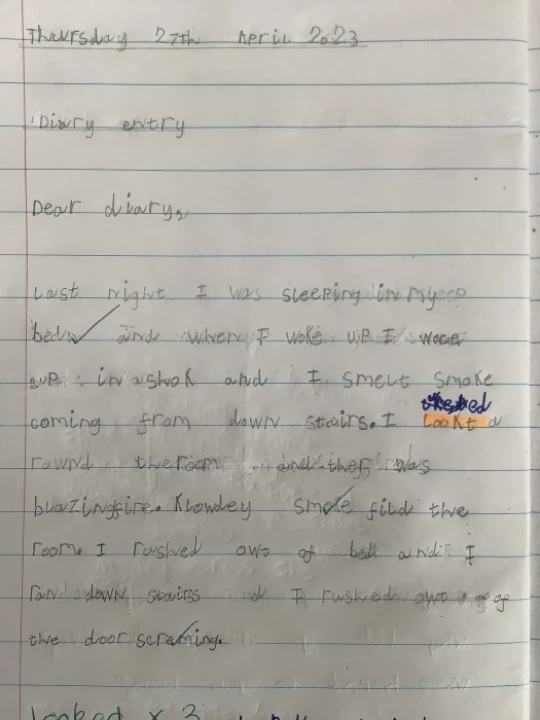 Thursday 27th April 2023
Diary entry
Dear diary,
Last night I was sleeping in my
bed and when I woke up I woce
up in ashok and I smelt smoke
coming from down stairs. I lookt a
round the room and ther was
blazingfire. Klowdey smoke fild the
room. I rushed owt of bed and I
ran down stairs I rushed owt of
the door scraming.
looked x 3